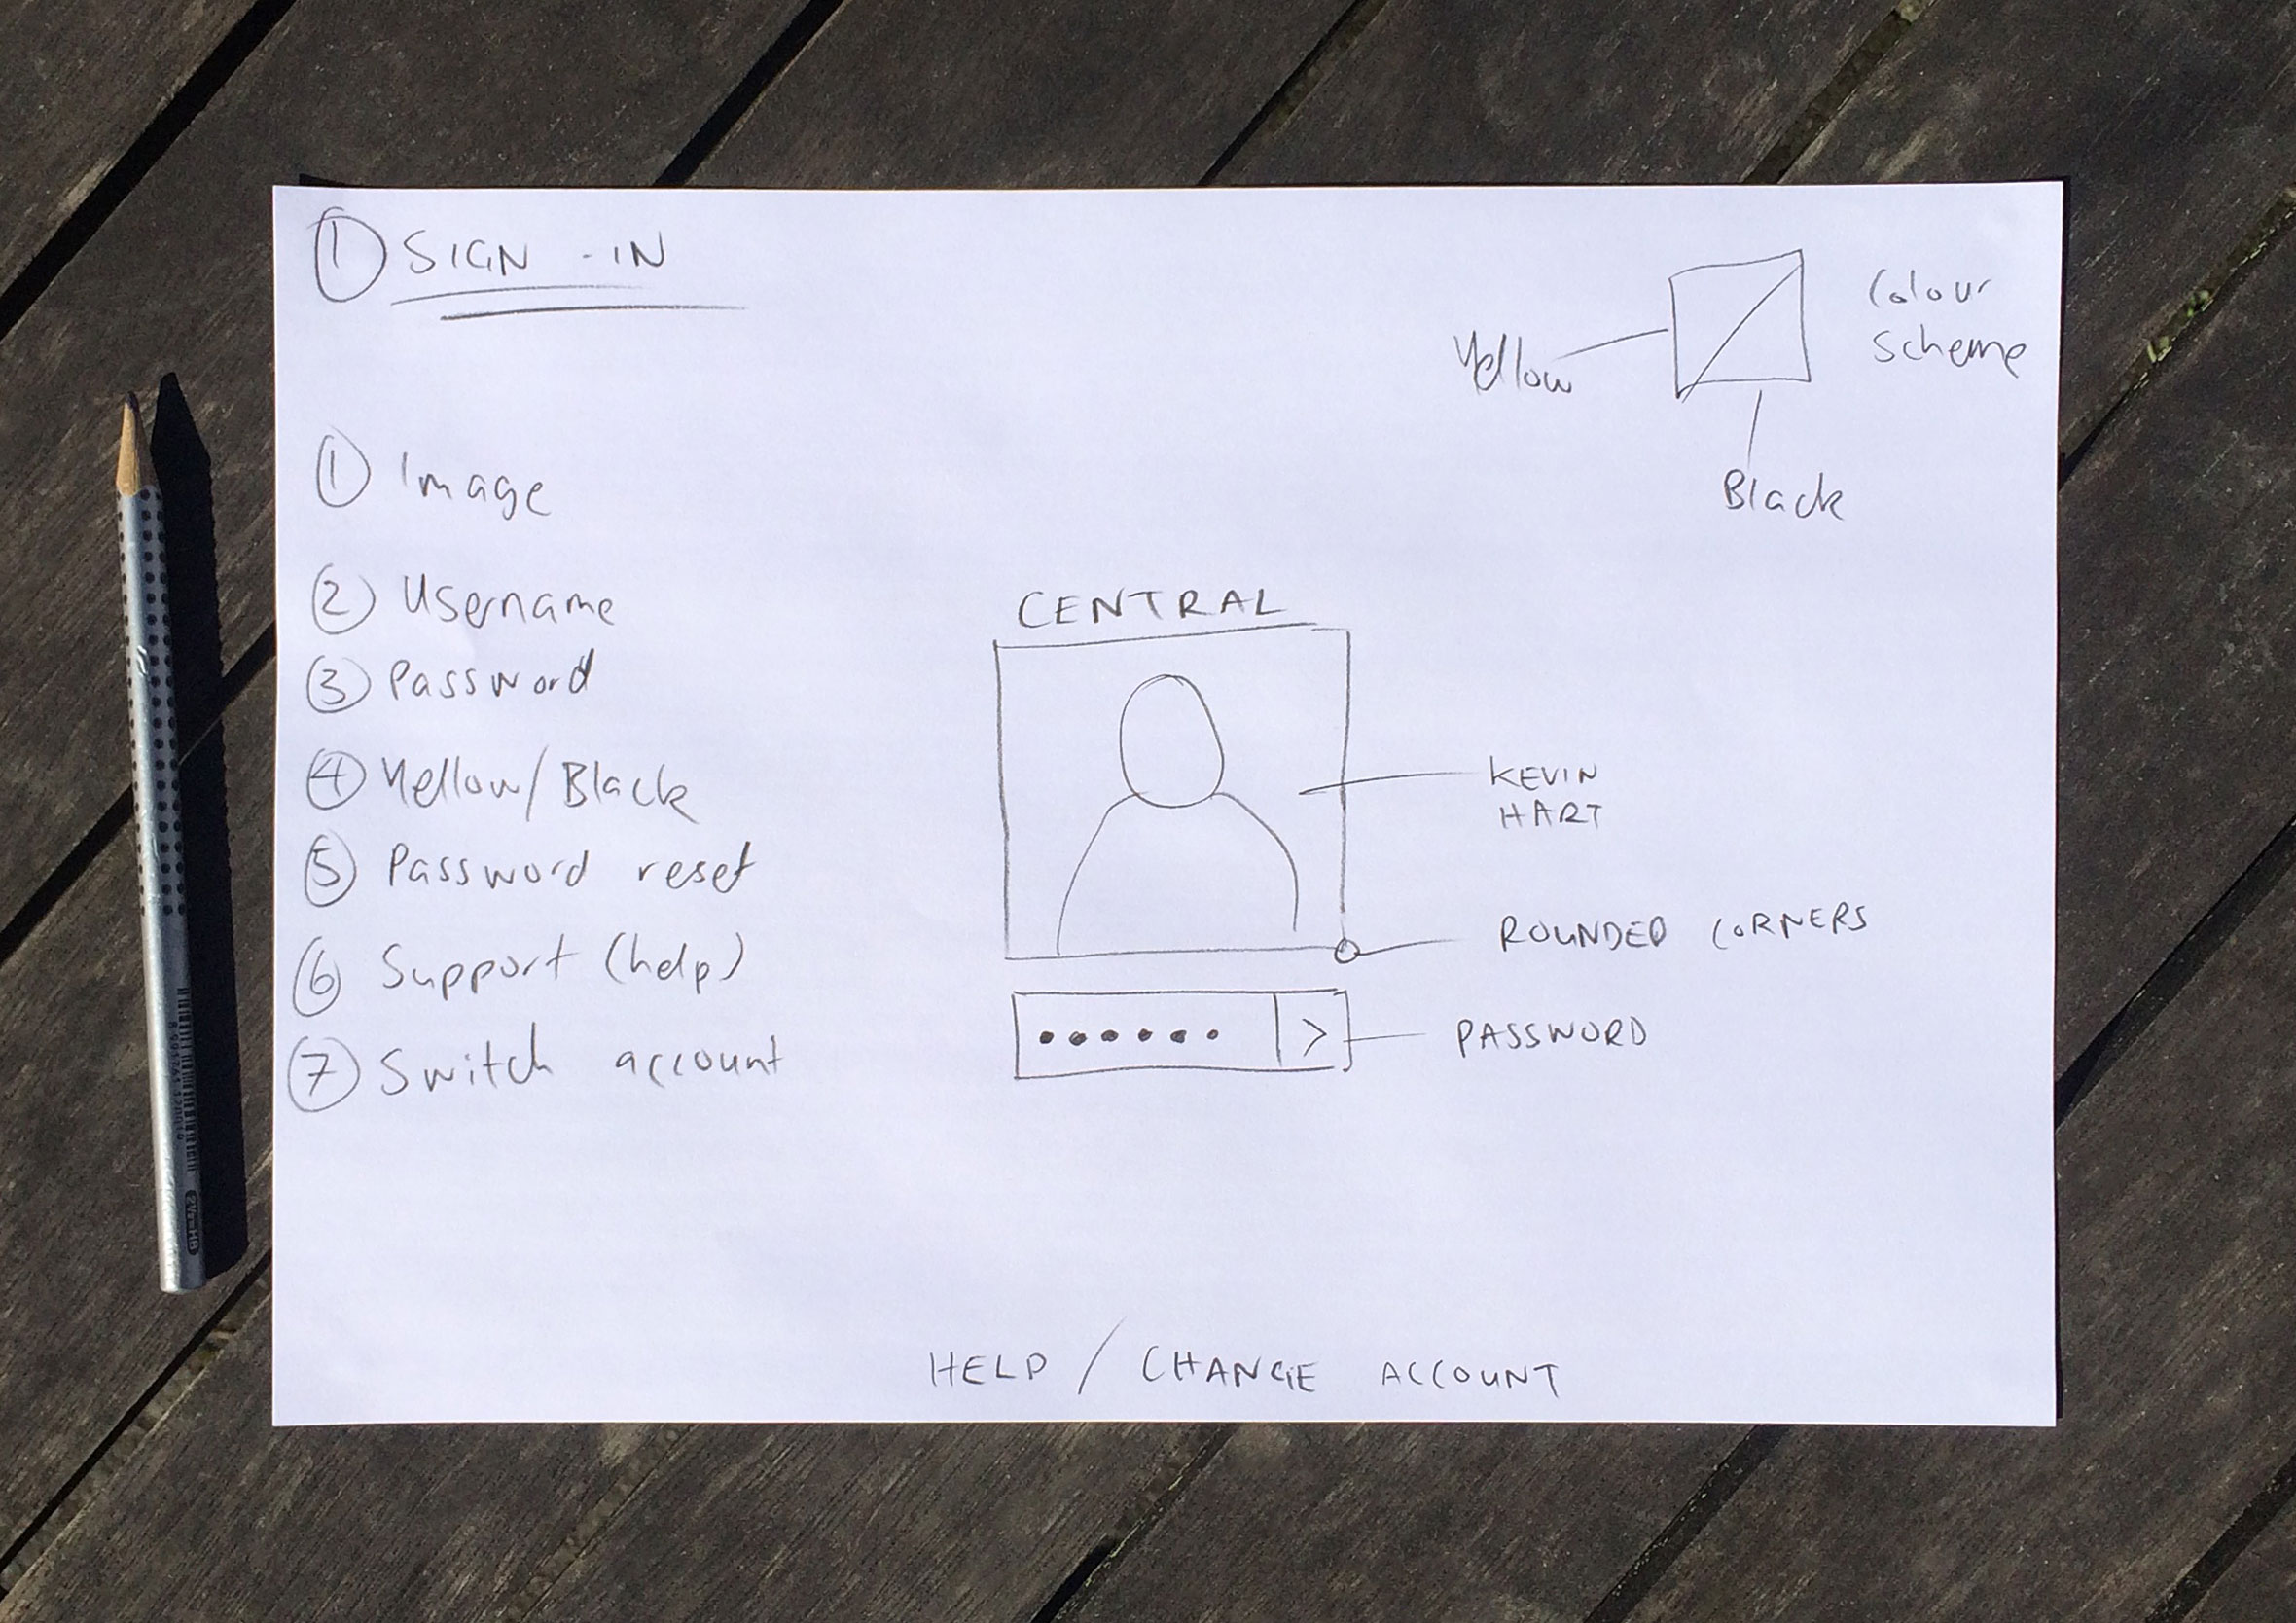 ① SIGN-IN
Colour
scheme
Yellow
Black
① Image
② Username
③ Password
④ Yellow/Black
⑤ Password reset
⑥ Support (help)
⑦ Switch account
CENTRAL
KEVIN
HART
ROUNDED CORNERS
PASSWORD
HELP / CHANGE ACCOUNT